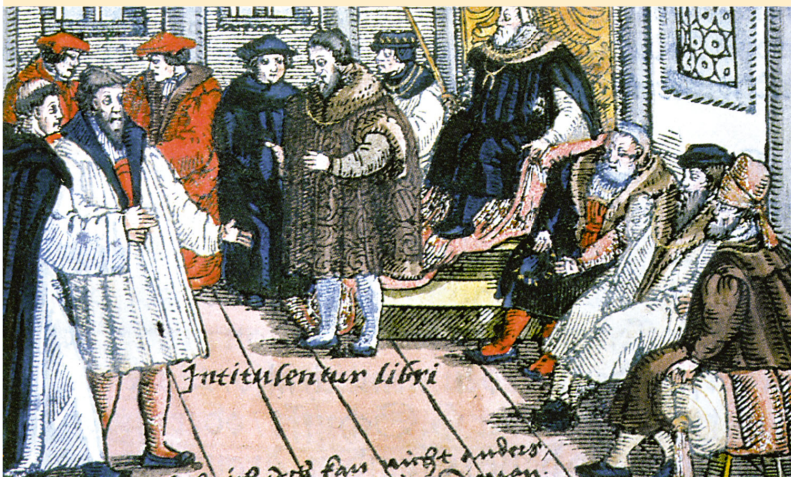 Intitulentur libri
ich kan nicht anders,
Amen.